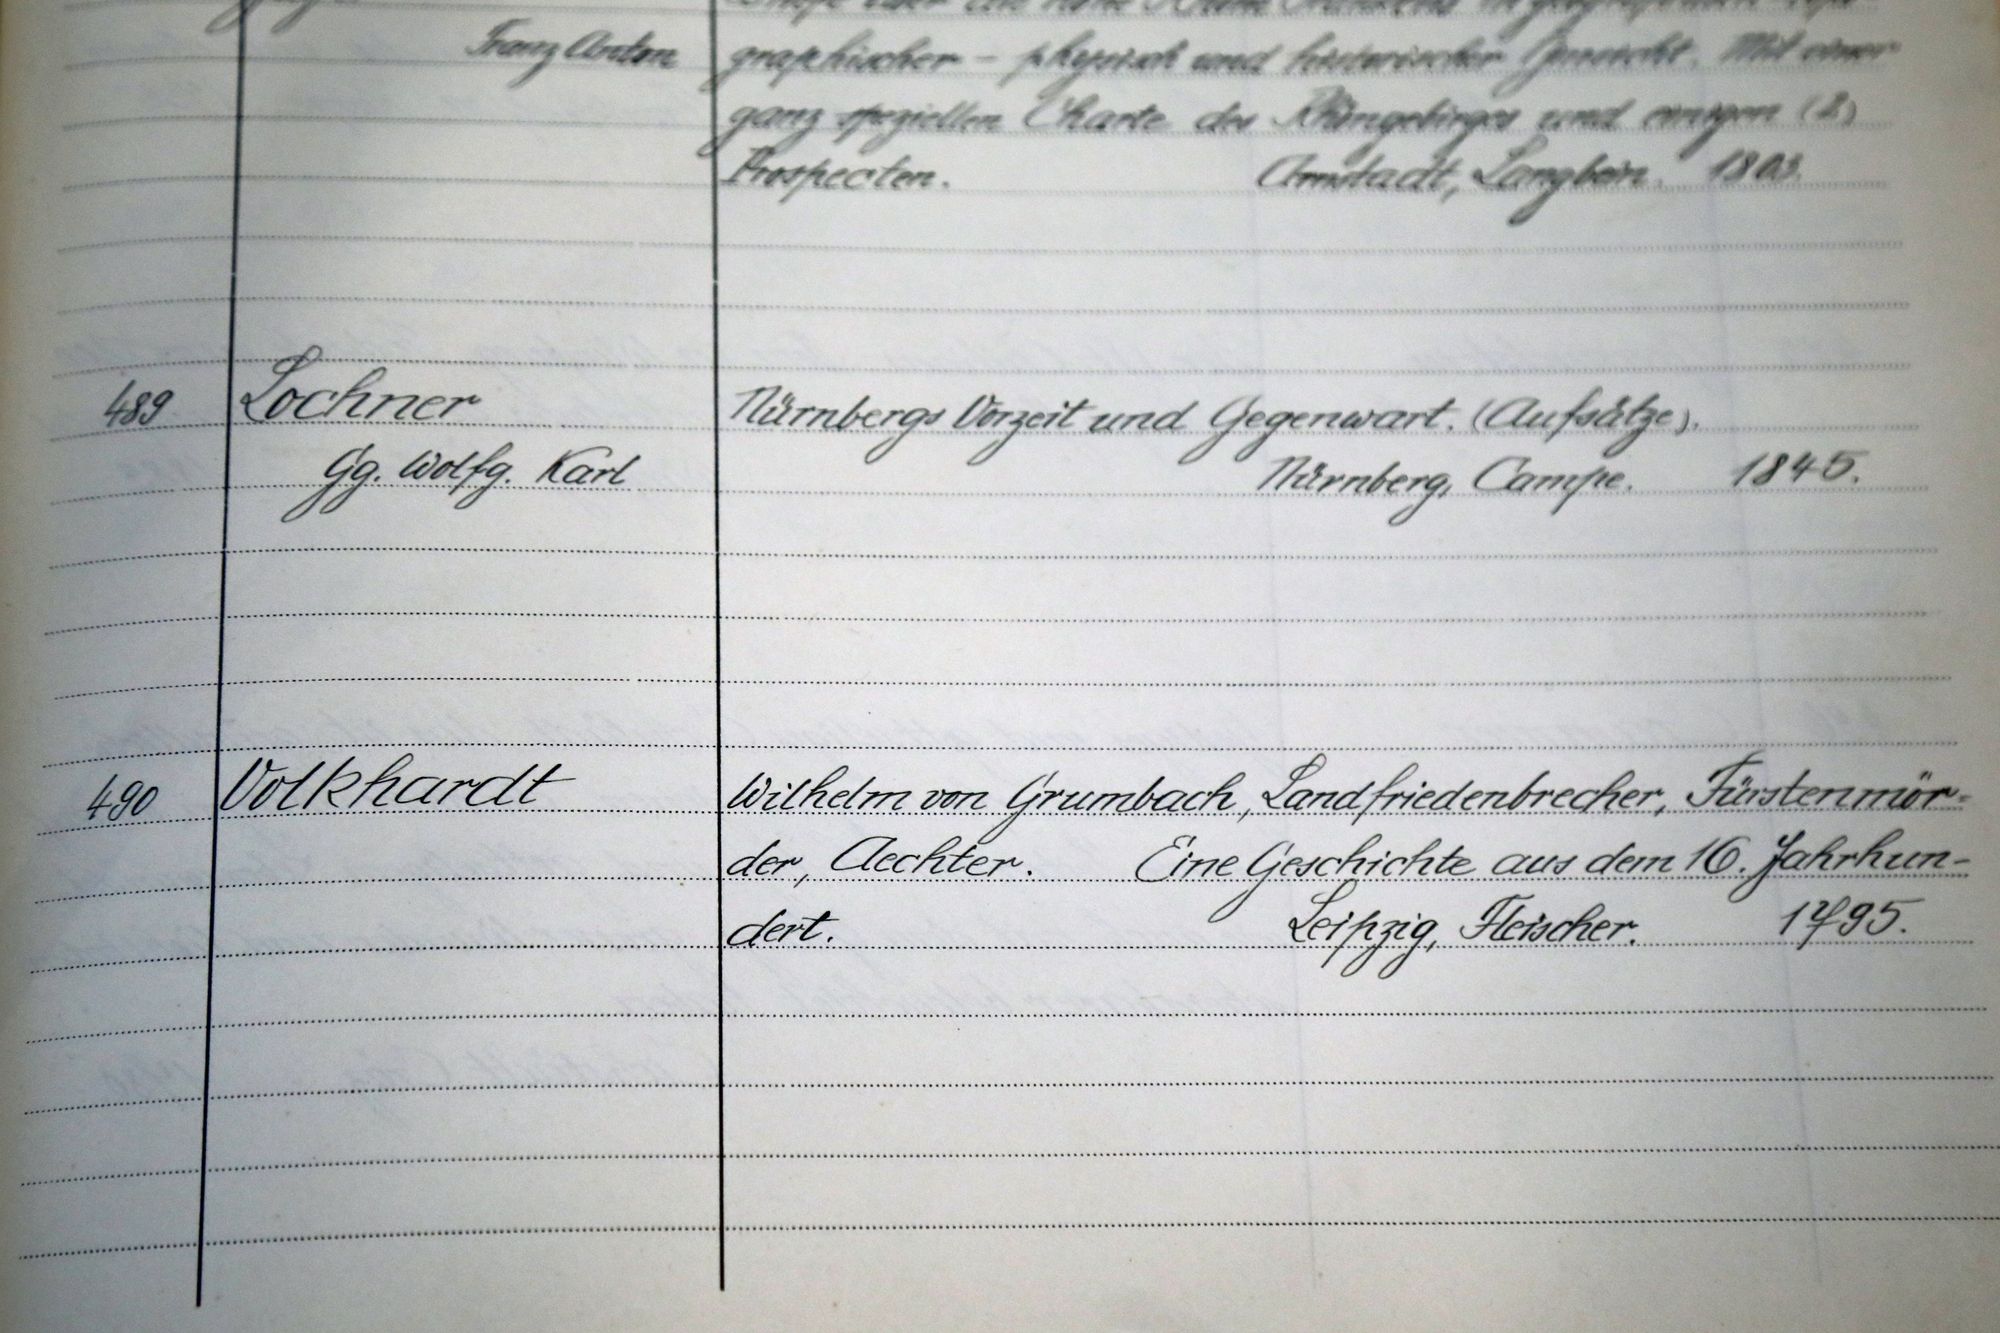 Franz Anton
graphischer – physisch und historischer Hinsicht. Mit einer
ganz speziellen Charte des Rhöngebirges und einigen (2)
Prospecten. Arnstadt, Langbein. 1803.
489 Lochner Nürnbergs Vorzeit und Gegenwart. (Aufsätze).
Gg. Wolfg. Karl Nürnberg, Campe. 1845.
490 Volkhardt Wilhelm von Grumbach, Landfriedenbrecher, Fürstenmör-
der, Aechter. Eine Geschichte aus dem 16. Jahrhun-
dert. Leipzig, Fleischer. 1795.